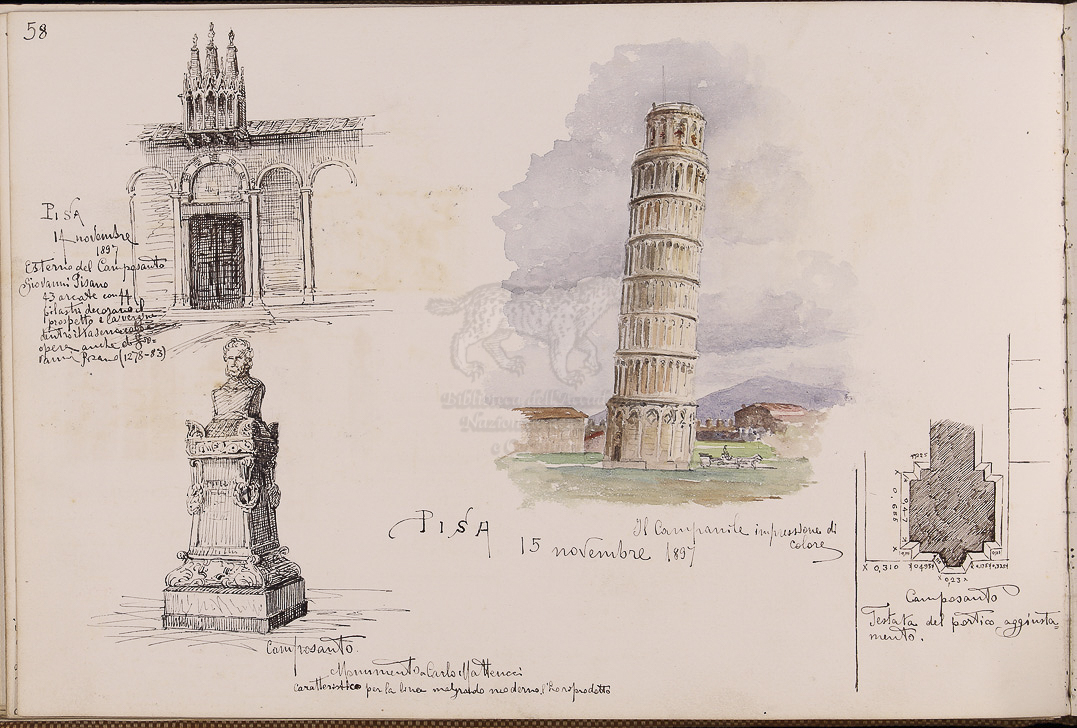 58
PISA
14 novembre
1897
Esterno del Camposanto
Giovanni Pisano
43 arcate con 44
pilastri decorano il
prospetto e
opera anche di Gio-
vanni Pisano (1278-83)
Camposanto
Monumento a Carlo Matteucci
Caratteristico per la linea malgrado moderno, l'ho riprodotto
PISA
Il Campanile impressione di
colore
15 novembre 1897
Biblioteca dell'Archi
Nazion
0,225
0,688
0,447
x 0,310
x 0,23 x
Camposanto
Testata del portico aggiusta-
mento.